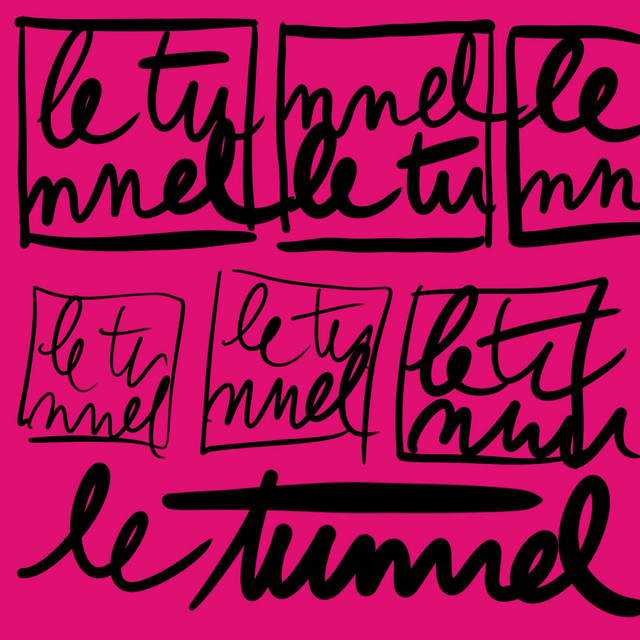 le tu nnel le
nnel le tu nn
le tu le tu le tu
nnel nnel nn
le tunnel